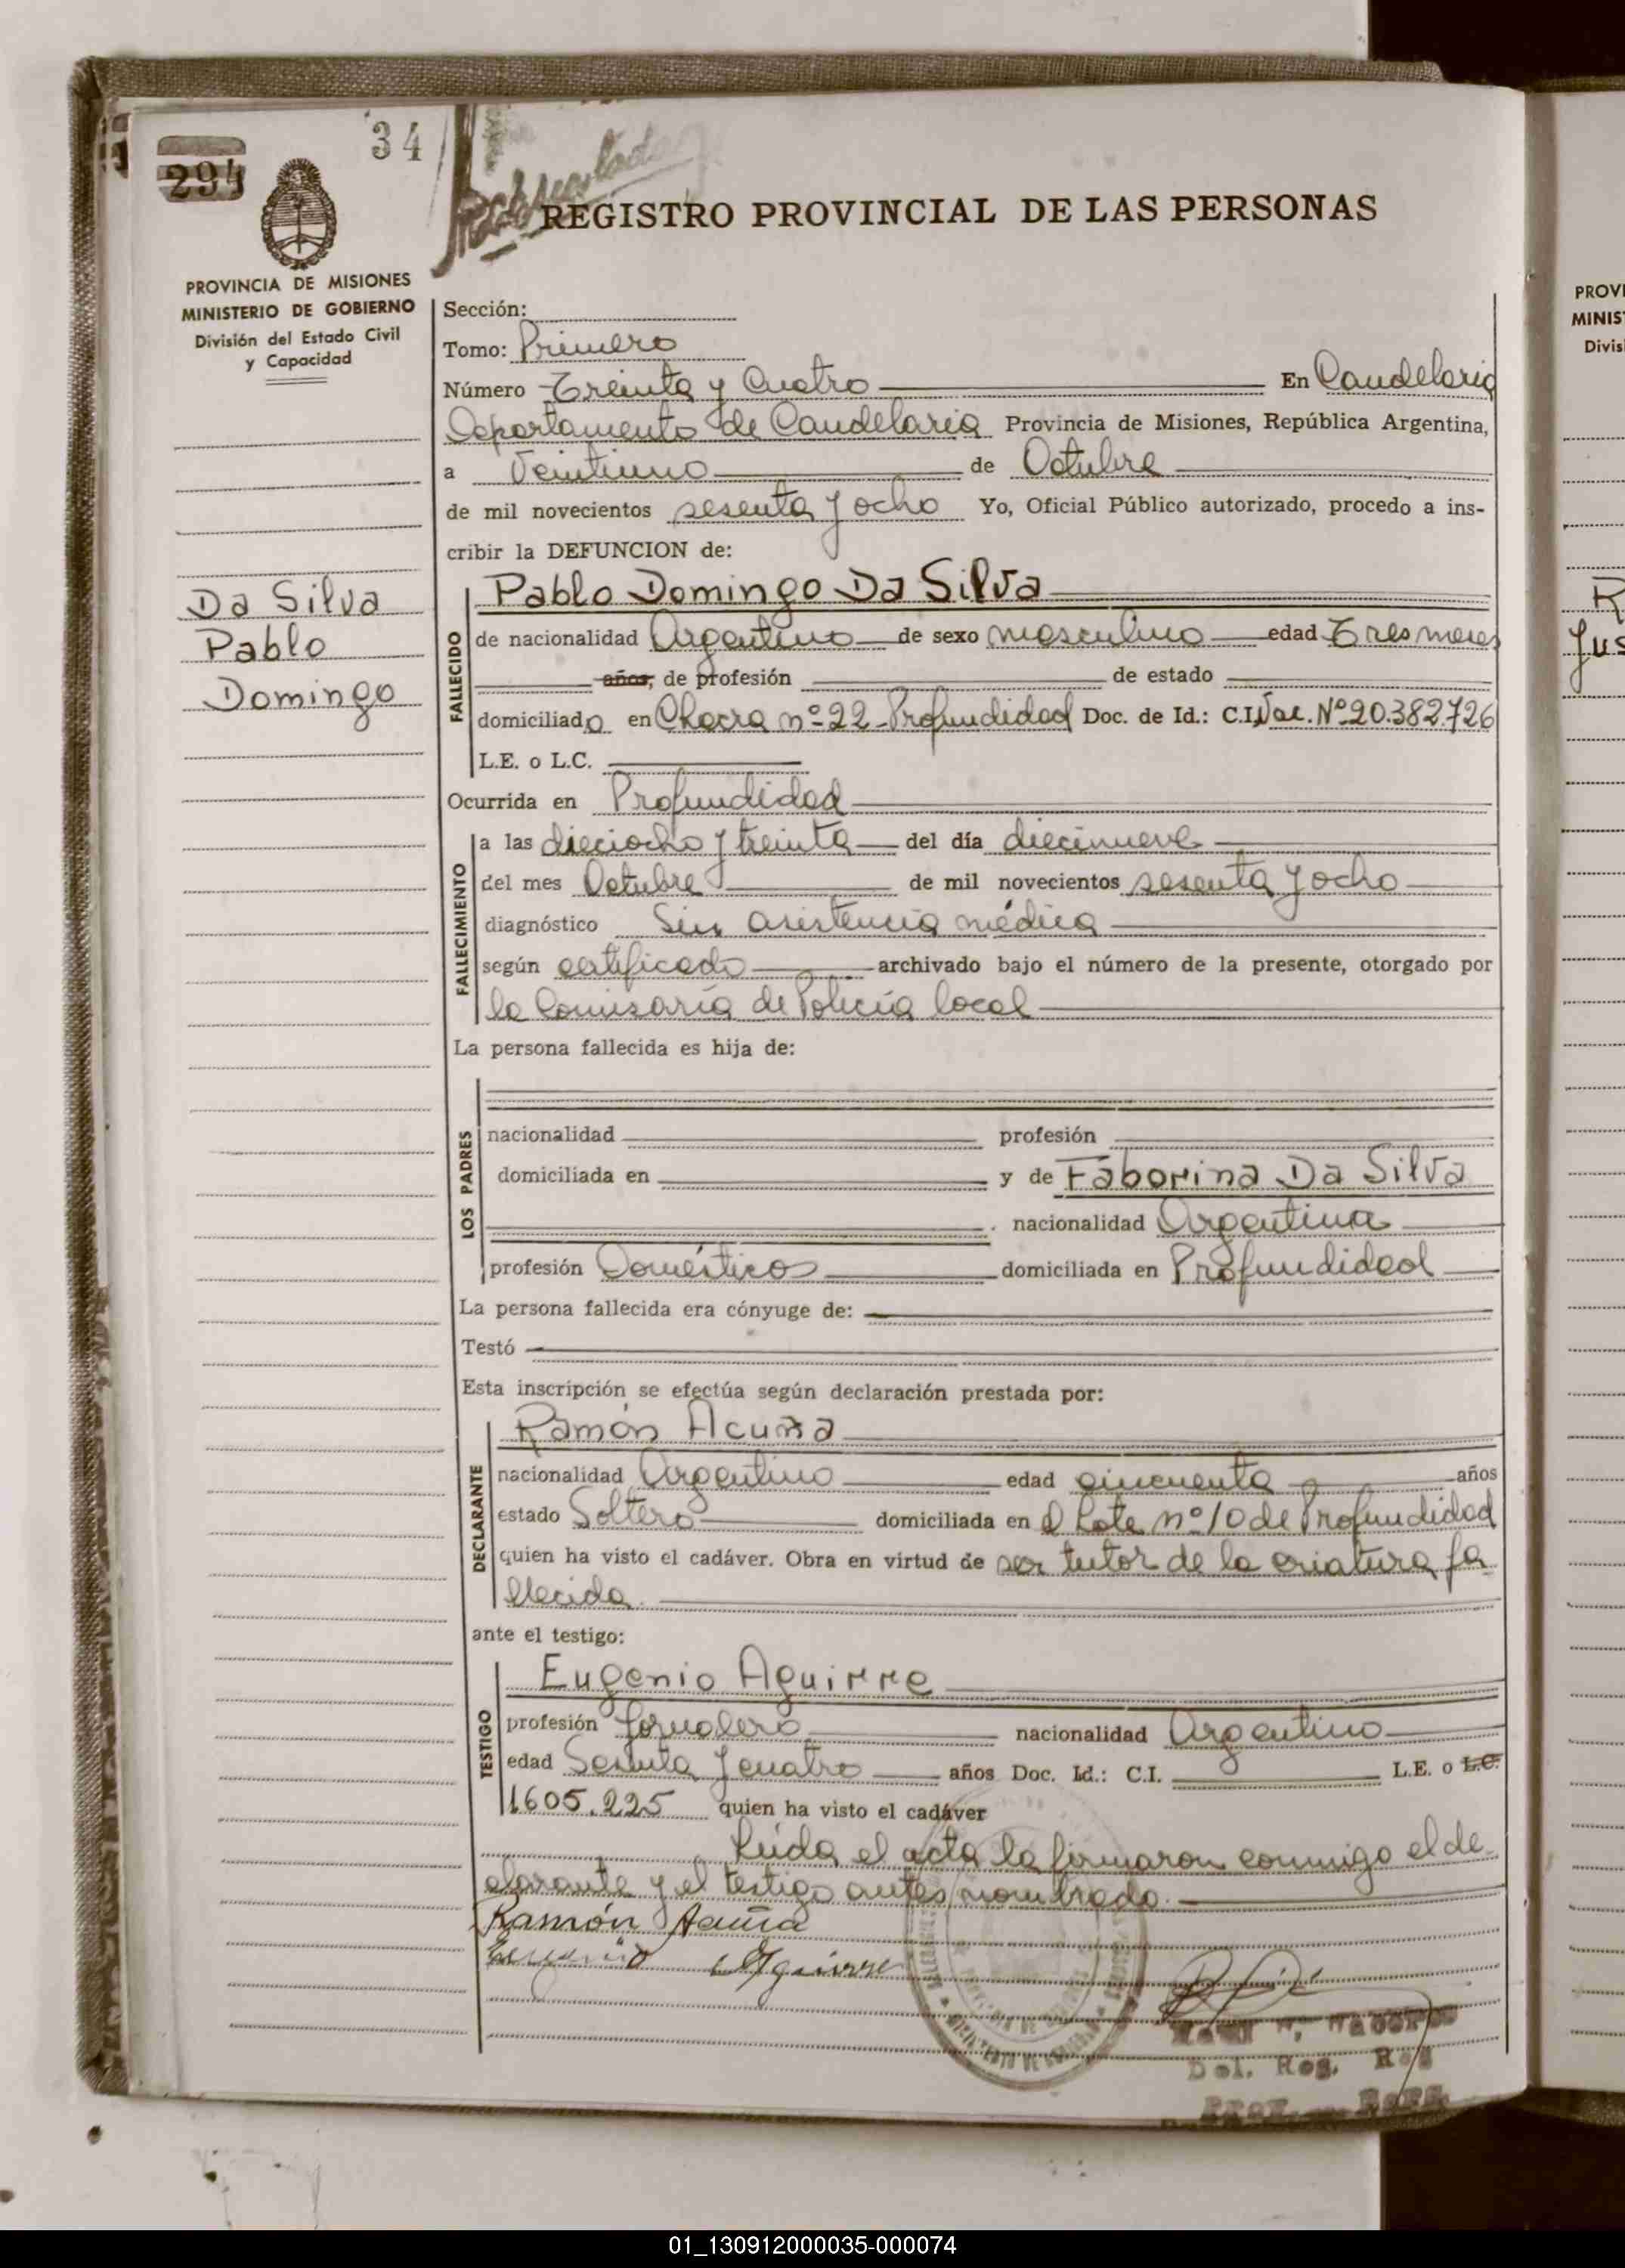 34
294
REGISTRO PROVINCIAL DE LAS PERSONAS
PROVINCIA DE MISIONES
MINISTERIO DE GOBIERNO
División del Estado Civil
y Capacidad
Da Silva
Pablo
Domingo
Sección:
Tomo: Primero
Número Treinta y Cuatro En Candelaria
Departamento de Candelaria Provincia de Misiones, República Argentina,
a Veintiuno de Octubre
de mil novecientos sesenta y ocho Yo, Oficial Público autorizado, procedo a ins-
cribir la DEFUNCION de:
FALLECIDO
Pablo Domingo Da Silva
de nacionalidad Argentino de sexo masculino edad Tres meses
años, de profesión de estado
domiciliado en Chacra nº 22 Profundidad Doc. de Id.: C.I. Nac. Nº 20.382.726
L.E. o L.C.
Ocurrida en Profundidad
FALLECIMIENTO
a las dieciocho y treinta del día diecinueve
del mes Octubre de mil novecientos sesenta y ocho
diagnóstico Sin asistencia médica
según certificado archivado bajo el número de la presente, otorgado por
la Comisaría de Policía local
La persona fallecida es hija de:
LOS PADRES
nacionalidad profesión
domiciliada en y de Faborina Da Silva
nacionalidad Argentina
profesión Domésticos domiciliada en Profundidad
La persona fallecida era cónyuge de:
Testó
Esta inscripción se efectúa según declaración prestada por:
DECLARANTE
Ramón Acuña
nacionalidad Argentino edad cincuenta años
estado Soltero domiciliada en el Lote nº 10 de Profundidad
quien ha visto el cadáver. Obra en virtud de ser tutor de la criatura fa
llecida
ante el testigo:
TESTIGO
Eugenio Aguirre
profesión Jornalero nacionalidad Argentino
edad Sesenta y cuatro años Doc. Id.: C.I. L.E. o L.C.
1605.225 quien ha visto el cadáver
Leída el acta la firmaron conmigo el de
clarante y el testigo antes nombrado.
Ramón Acuña
Eugenio Aguirre
Del. Reg.
PROVI
MINIS
Divis
01_130912000035-000074